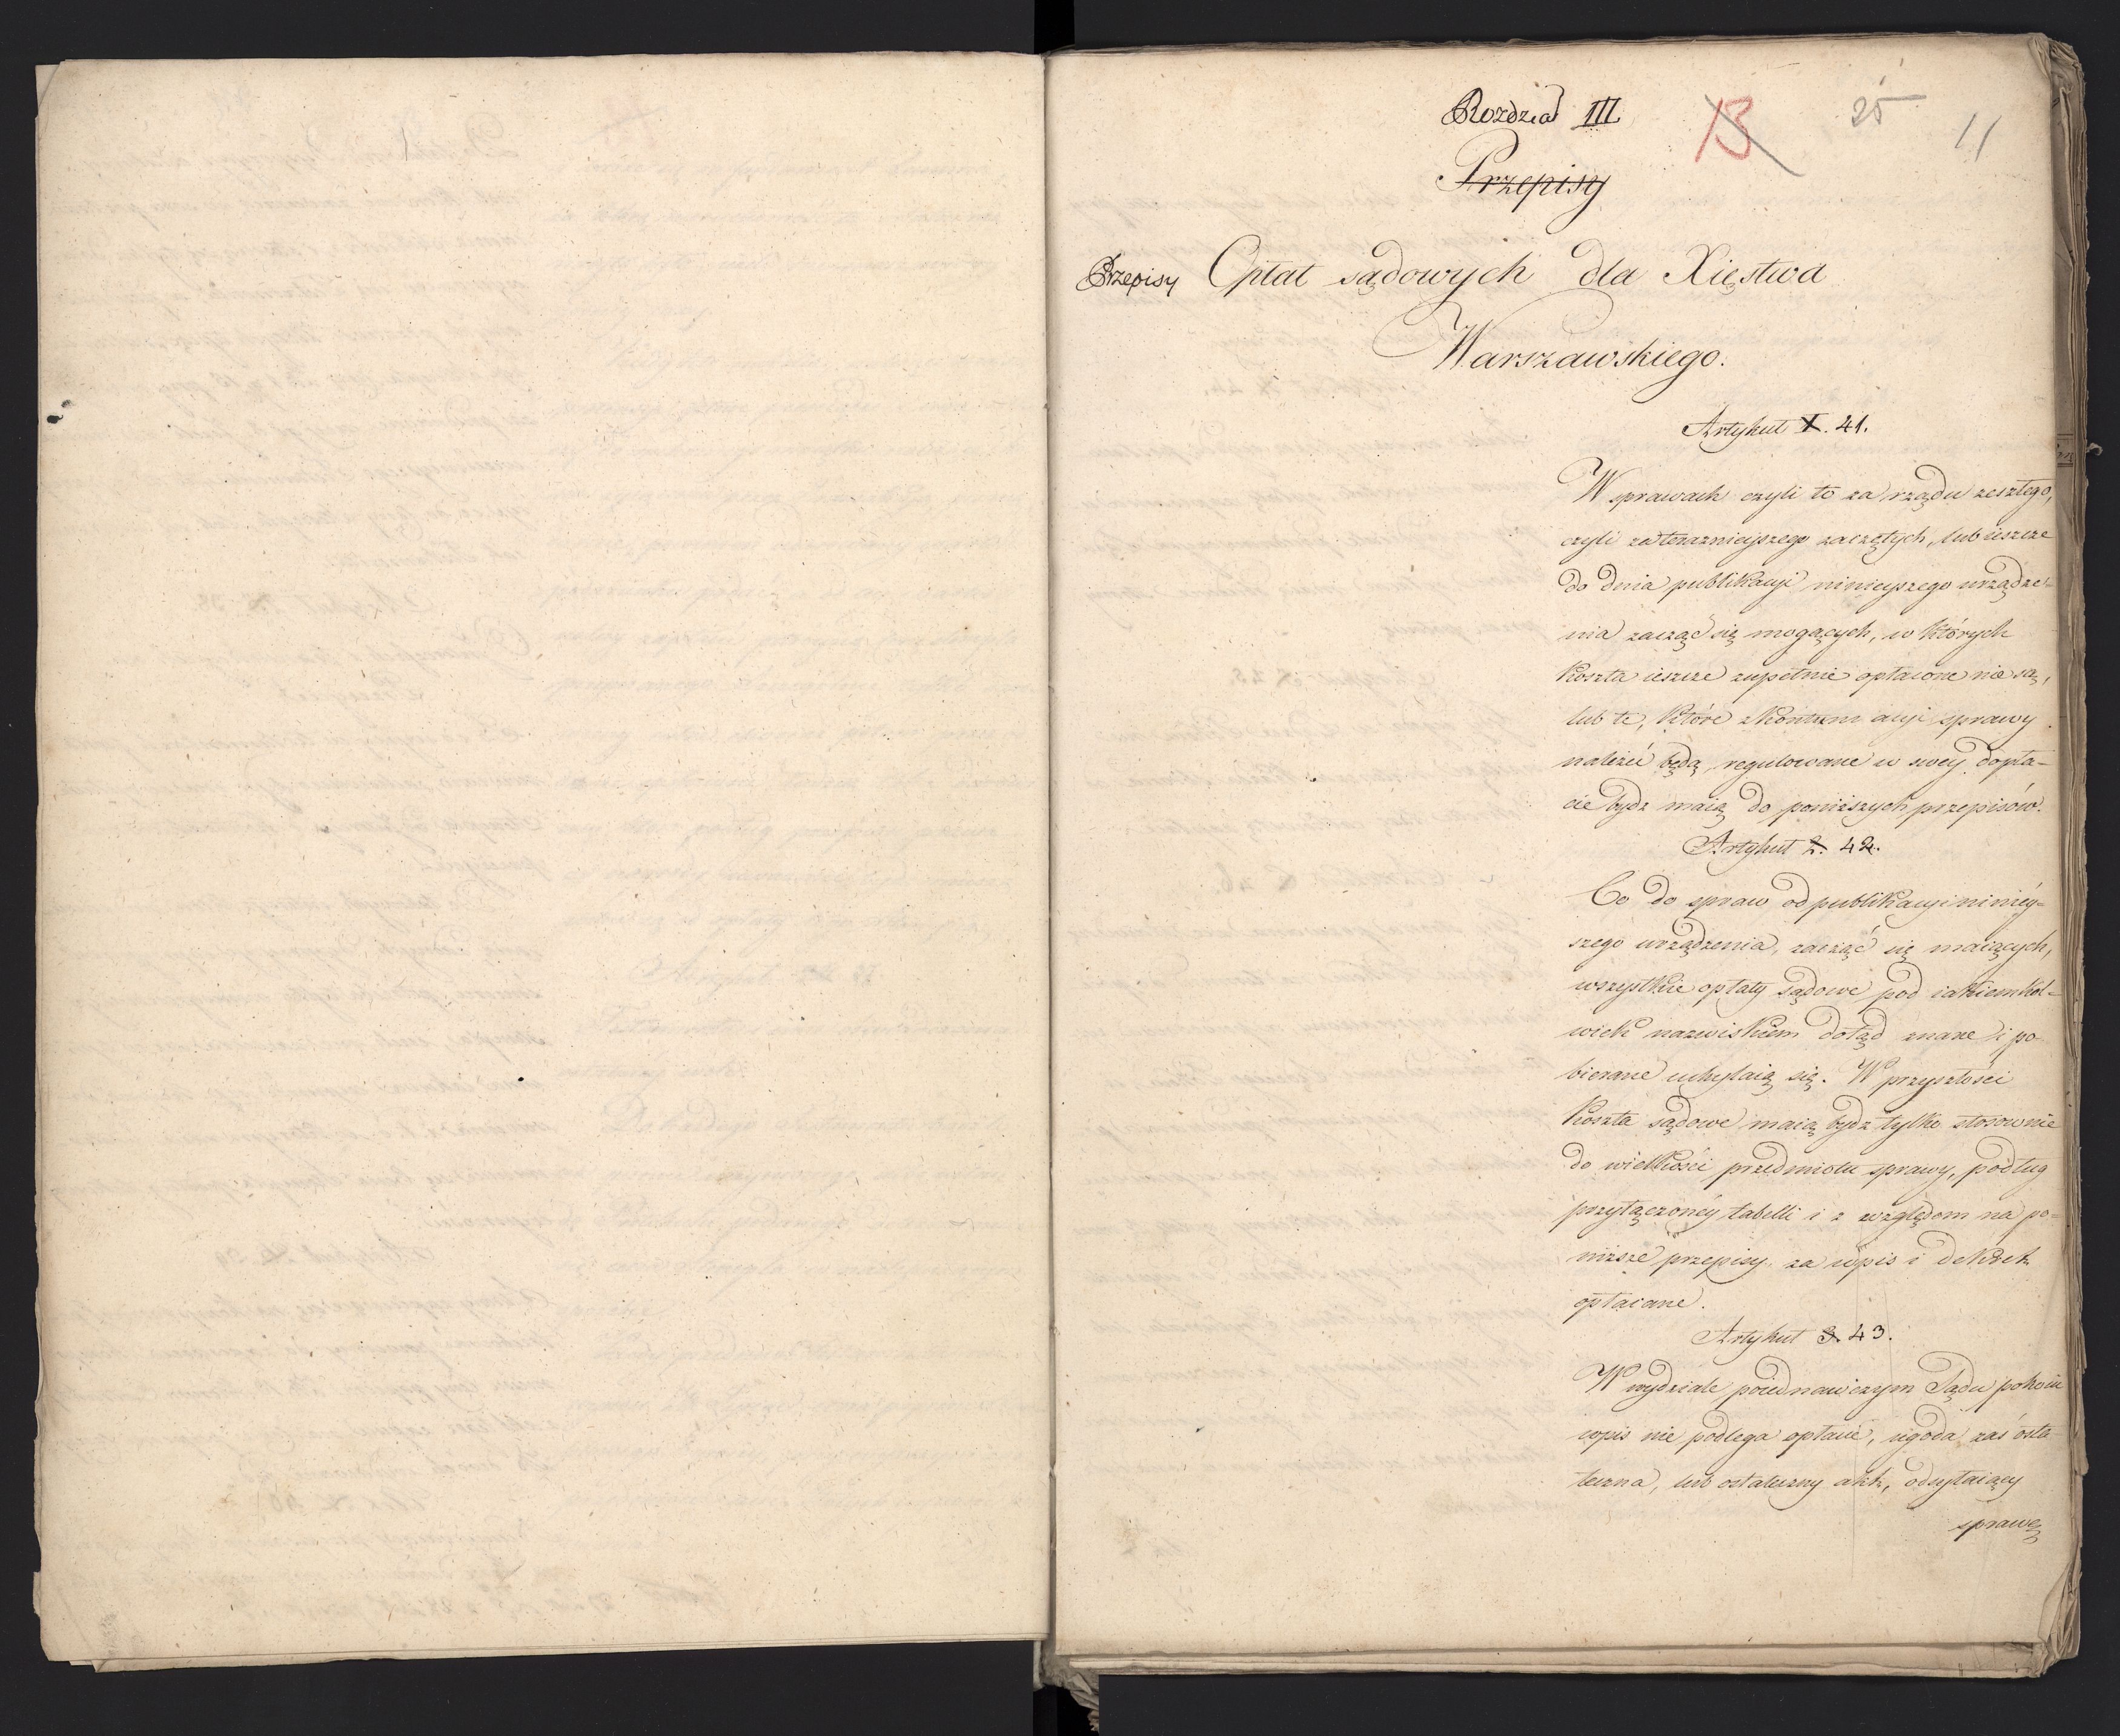 Rozdział III 13 25 11
Przepisy
Przepisy Opłat sądowych dla Xięstwa
Warszawskiego.
Artykuł 1. 41.
W sprawach czyli to za rządu zeszłego,
czyli za teraznieyszego zaczętych, lub ieszcze
do dnia publikacyi ninieyszego urządze-
nia zacząć się mogących, w których
koszta ieszcze zupełnie opłacone nie są,
lub te, które z kontumacyi sprawy
należeć będą, regulowane w swey dopła-
cie bydz maią do poniższych przepisów.
Artykuł 2. 42.
Co do spraw od publikacyi ninięy-
szego urządzenia, zacząć się maiących,
wszystkie opłaty sądowe pod iakiemkol-
wiek nazwiskiem dotąd znane i po-
bierane uchylaią się. W przyszłości
koszta sądowe maią bydz tylko stosownie
do wielkości przedmiotu sprawy, podług
przyłączonéy tabelli i z względem na po-
niższe przepisy za wpis i dekret
opłacane.
Artykuł 3. 43.
W wydziale poiednawczym Sądu pokoiu
wpis nie podlega opłacie, ugoda zaś osta-
teczna, lub ostateczny akt, odsyłaiący
sprawę